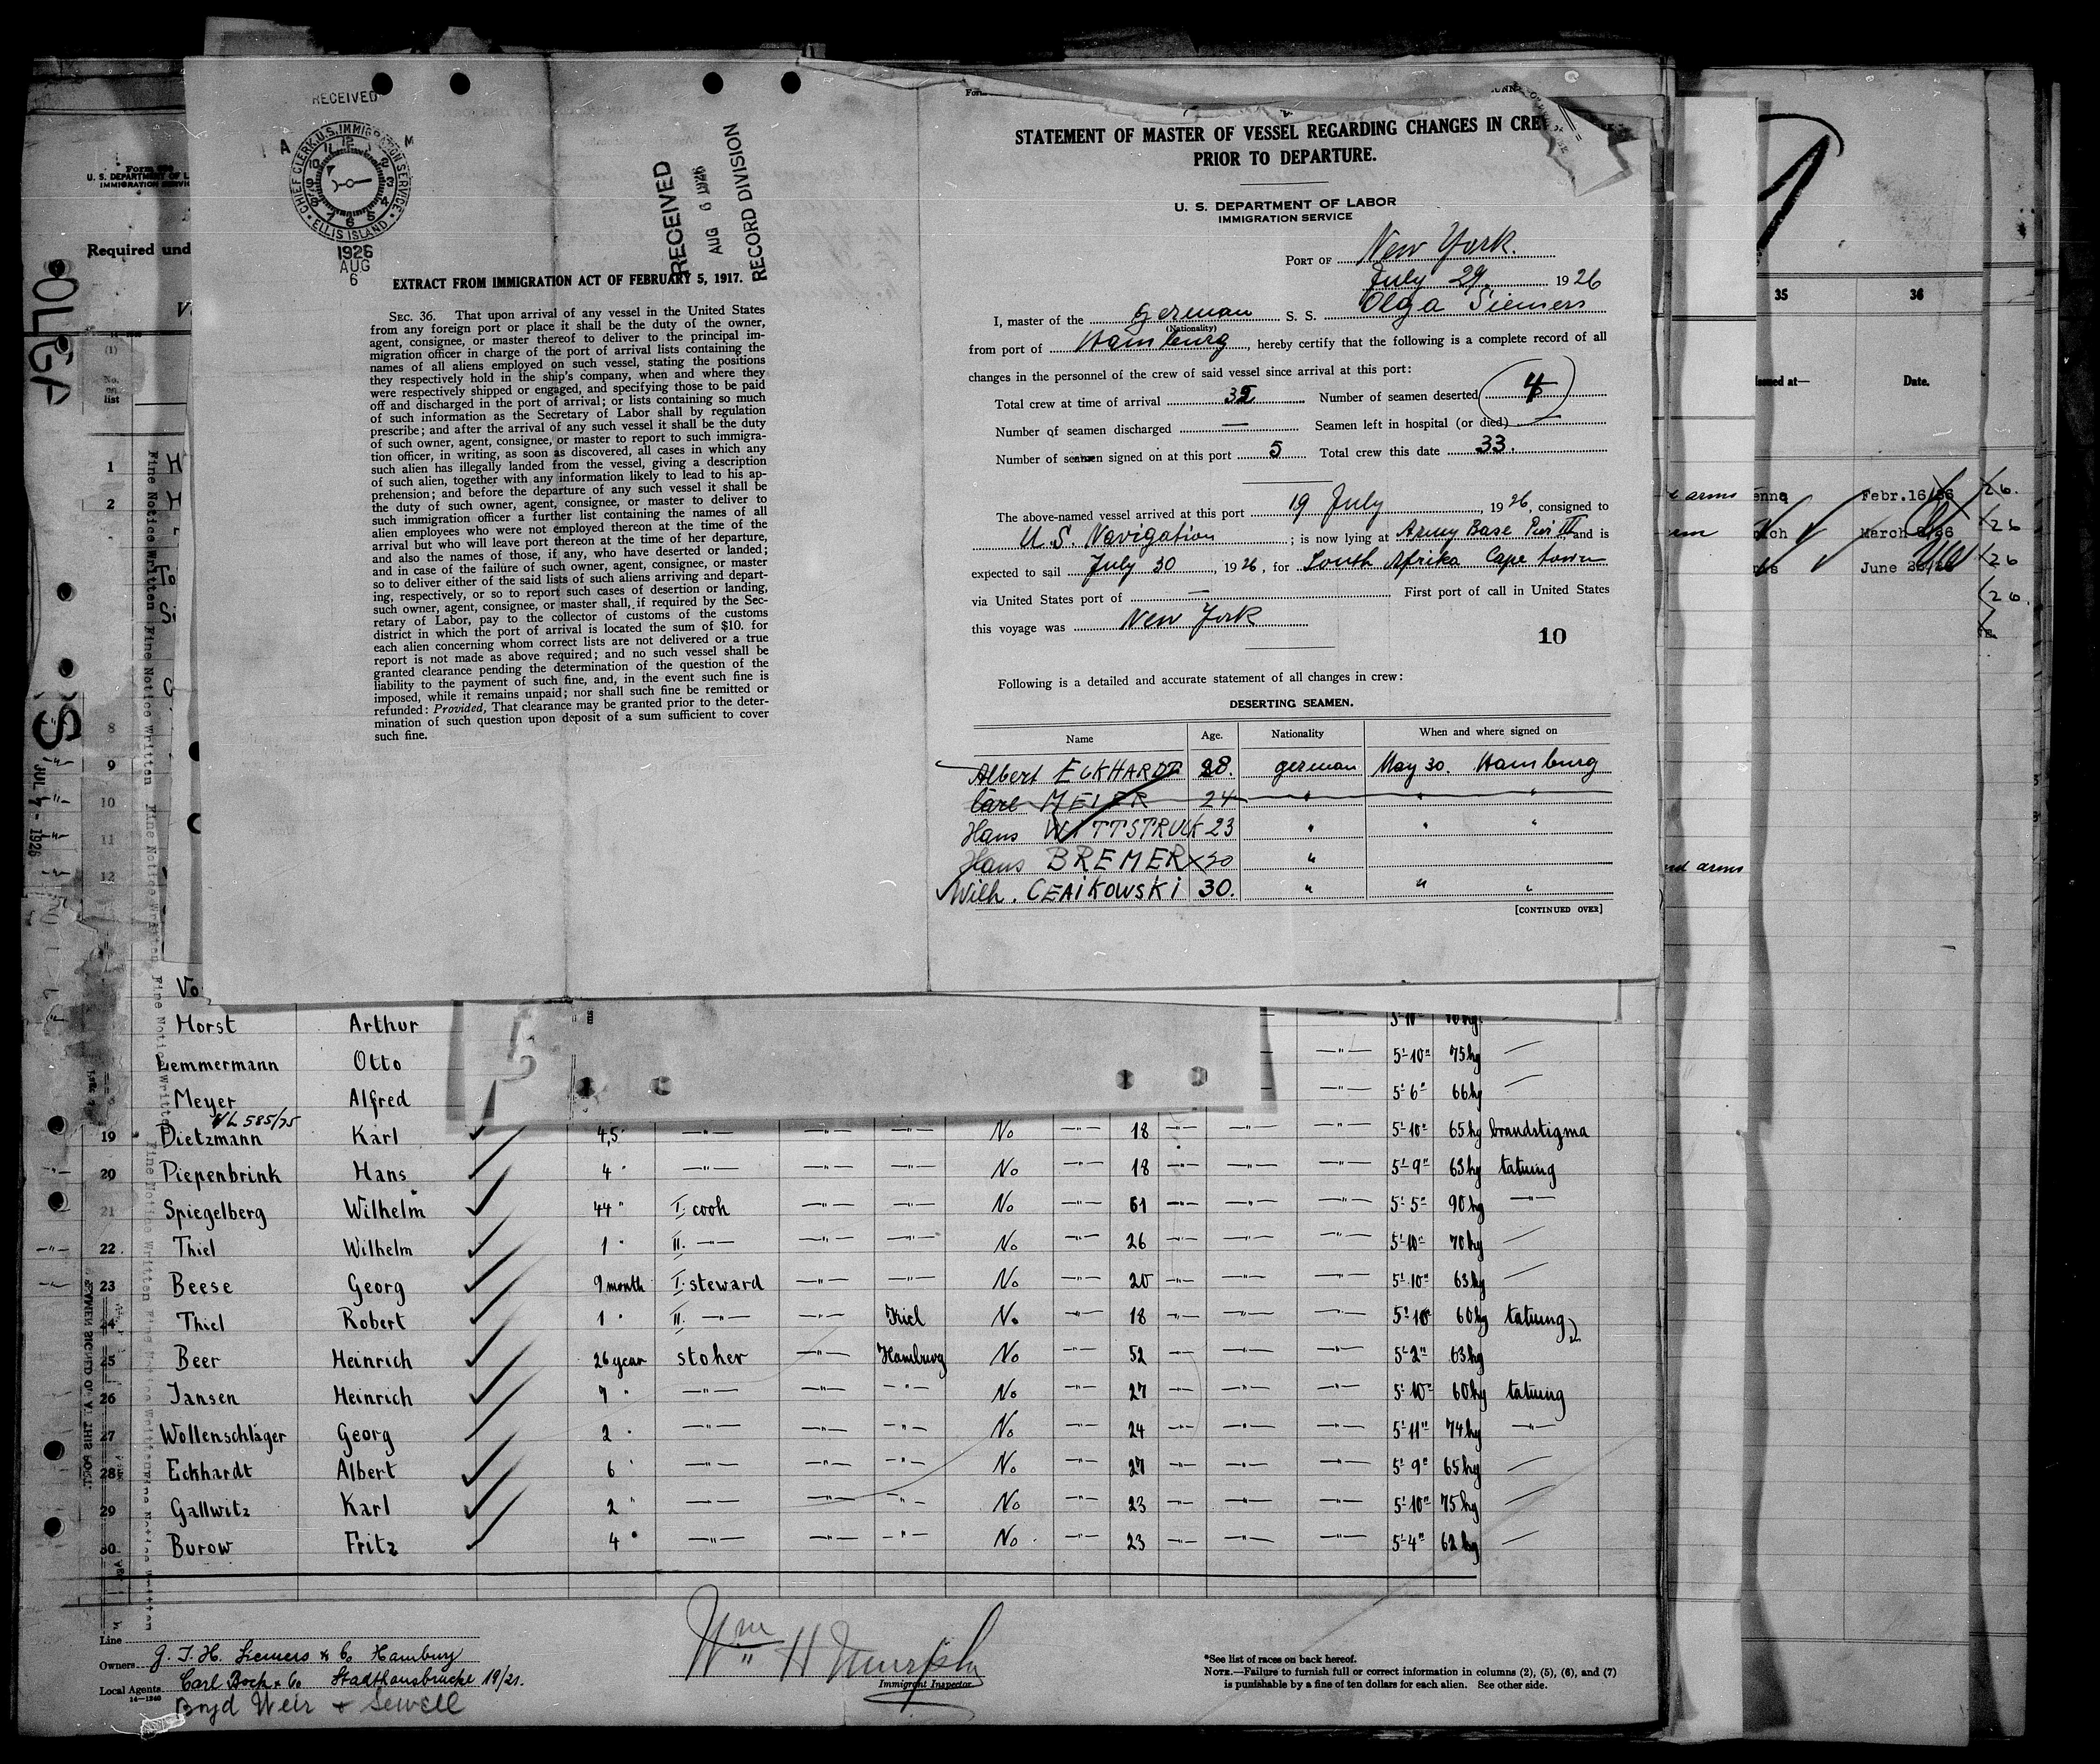 RECEIVED
A M
CHIEF CLERK, U.S. IMMIGRATION SERVICE
12 1 2 3 4 5 6 7 8 9 10 11
ELLIS ISLAND
1926
AUG
6
RECEIVED
AUG 6 1926
RECORD DIVISION
EXTRACT FROM IMMIGRATION ACT OF FEBRUARY 5, 1917.
SEC. 36. That upon arrival of any vessel in the United States
from any foreign port or place it shall be the duty of the owner,
agent, consignee, or master thereof to deliver to the principal im-
migration officer in charge of the port of arrival lists containing the
names of all aliens employed on such vessel, stating the positions
they respectively hold in the ship's company, when and where they
were respectively shipped or engaged, and specifying those to be paid
off and discharged in the port of arrival; or lists containing so much
of such information as the Secretary of Labor shall by regulation
prescribe; and after the arrival of any such vessel it shall be the duty
of such owner, agent, consignee, or master to report to such immigra-
tion officer, in writing, as soon as discovered, all cases in which any
such alien has illegally landed from the vessel, giving a description
of such alien, together with any information likely to lead to his ap-
prehension; and before the departure of any such vessel it shall be
the duty of such owner, agent, consignee, or master to deliver to
such immigration officer a further list containing the names of all
alien employees who were not employed thereon at the time of the
arrival but who will leave port thereon at the time of her departure,
and also the names of those, if any, who have deserted or landed;
and in case of the failure of such owner, agent, consignee, or master
so to deliver either of the said lists of such aliens arriving and depart-
ing, respectively, or so to report such cases of desertion or landing,
such owner, agent, consignee, or master shall, if required by the Sec-
retary of Labor, pay to the collector of customs of the customs
district in which the port of arrival is located the sum of $10. for
each alien concerning whom correct lists are not delivered or a true
report is not made as above required; and no such vessel shall be
granted clearance pending the determination of the question of the
liability to the payment of such fine, and, in the event such fine is
imposed, while it remains unpaid; nor shall such fine be remitted or
refunded: Provided, That clearance may be granted prior to the deter-
mination of such question upon deposit of a sum sufficient to cover
such fine.
STATEMENT OF MASTER OF VESSEL REGARDING CHANGES IN CRE
PRIOR TO DEPARTURE.
U. S. DEPARTMENT OF LABOR
IMMIGRATION SERVICE
PORT OF New York.
July 29. 1926
I, master of the german S. S. Olga Siemers
(Nationality)
from port of Hamburg, hereby certify that the following is a complete record of all
changes in the personnel of the crew of said vessel since arrival at this port:
Total crew at time of arrival 32 Number of seamen deserted 4
Number of seamen discharged — Seamen left in hospital (or died) —
Number of seamen signed on at this port 5 Total crew this date 33.
The above-named vessel arrived at this port 19 July, 1926, consigned to
U.S. Navigation; is now lying at Army Base Pier III and is
expected to sail July 30, 1926, for South Afrika Cape town
via United States port of — First port of call in United States
this voyage was New York
10
Following is a detailed and accurate statement of all changes in crew:
DESERTING SEAMEN.
Name Age. Nationality When and where signed on
Albert ECKHARDT 28. german May 30. Hamburg
Carl MEIER 24 " " "
Hans WITTSTRUCK 23 " " "
Hans BREMER x30 "
Wilh. CEAIKOWSKI 30. " " "
[CONTINUED OVER]
Form
U. S. DEPARTMENT OF L
IMMIGRATION SERVIC
Required und
(1)
No.
on
list
OLGA
S
JUL - 1926
Fine Notice Written Fine Notice Written Fine Notice Written
1 H
2 H
8
9
10
11
12
35 36
Issued at— Date.
arms enna Febr.16/26 26.
arm ich March 26
June 26/26 26
26.
and arms
Vo
Horst Arthur
Lemmermann Otto —"— 5'-10" 75kg —
Meyer Alfred —"— 5'-6" 66kg —
VL 585/75
19 Dietzmann Karl 4,5 " —"— —"— —"— No —"— 18 —"— —"— —"— 5'-10" 65kg brandstigma
20 Piepenbrink Hans 4 " —"— —"— —"— No —"— 18 —"— —"— —"— 5'-9" 63kg tatuing
21 Spiegelberg Wilhelm 44 " I. cook —"— —"— No —"— 61 —"— —"— —"— 5'-5" 90kg —"—
22 Thiel Wilhelm 1 " II. —"— —"— —"— No —"— 26 —"— —"— —"— 5'-10" 70kg —
23 Beese Georg 9 month I. steward —"— —"— No —"— 20 —"— —"— —"— 5'-10" 63kg —
24 Thiel Robert 1 " II. —"— —"— Kiel No —"— 18 —"— —"— —"— 5'-10" 60kg tatuing
25 Beer Heinrich 26 year stoker —"— Hamburg No —"— 52 —"— —"— —"— 5'-2" 63kg
26 Jansen Heinrich 7 " —"— —"— —"— No —"— 27 —"— —"— —"— 5'-10" 60kg tatuing
27 Wollenschläger Georg 2 " —"— —"— —"— No —"— 24 —"— —"— —"— 5'-11" 74kg —"—
28 Eckhardt Albert 6 " —"— —"— —"— No —"— 27 —"— —"— —"— 5'-9" 65kg —
29 Gallwitz Karl 2 " —"— —"— —"— No —"— 23 —"— —"— —"— 5'-10" 75kg —
30 Burow Fritz 4 " —"— —"— —"— No —"— 23 —"— —"— —"— 5'-4" 62kg —
SEAMEN SIGNED ON AT THIS PORT
Line
Owners G. J. H. Siemers & Co Hamburg
Local Agents Carl Bock & Co Stadthausbrücke 19/21.
14—1240
Boyd Weir & Sewell
Wm H Murphy
Immigrant Inspector
*See list of races on back hereof.
NOTE.—Failure to furnish full or correct information in columns (2), (5), (6), and (7)
is punishable by a fine of ten dollars for each alien. See other side.